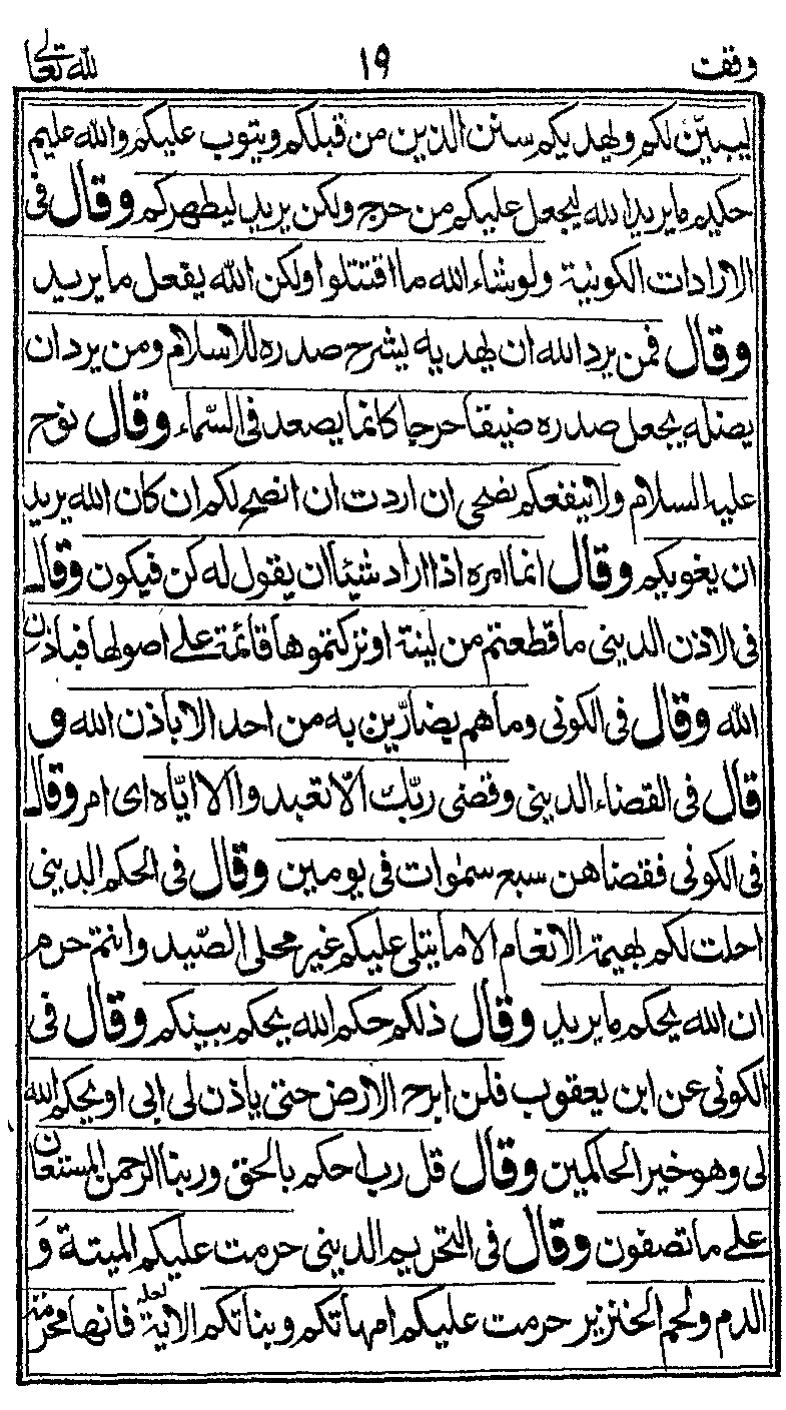 وقفت ١٩ لله تعالى
ليبين لكم ويهديكم سنن الذين من قبلكم ويتوب عليكم والله عليم
حكيم ما يريد الله ليجعل عليكم من حرج ولكن يريد ليطهركم وقال فى
الارادات الكونية ولو شاء الله ما اقتتلوا ولكن الله يفعل ما يريد
وقال فمن يرد الله ان يهديه يشرح صدره للاسلام ومن يرد ان
يضله يجعل صدره ضيقا حرجا كانما يصعد فى السّماء وقال نوح
عليه السلام ولا ينفعكم نضحى ان اردت ان انصح لكم ان كان الله يريد
ان يغويكم وقال انما امره اذا اراد شيئا ان يقول له كن فيكون وقال
فى الاذن الدينى ما قطعتم من لينة او تركتموها قائمة على اصولها فباذن
الله وقال فى الكونى وما هم بضارّين به من احد الا باذن الله و
قال فى القضاء الدينى وقضى ربّك الّا تعبدوا الا ايّاه اى امر وقال
فى الكونى فقضاهن سبع سمٰوات فى يومين وقال فى الحكم الدينى
احلت لكم بهيمة الانعام الا ما يتلى عليكم غير محلى الصّيد وانتم حرم
ان الله يحكم ما يريد وقال ذلكم حكم الله يحكم بينكم وقال فى
الكونى عن ابن يعقوب فلن ابرح الارض حتى ياذن لى ابى او يحكم الله
لى وهو خير الحاكمين وقال قل رب احكم بالحق وربنا الرحمن المستعان
على ما تصفون وقال فى التحريم الدينى حرمت عليكم الميتة وَ
الدم ولحم الخنزير حرمت عليكم امهاتكم وبناتكم الاية لعله فانها محرمة